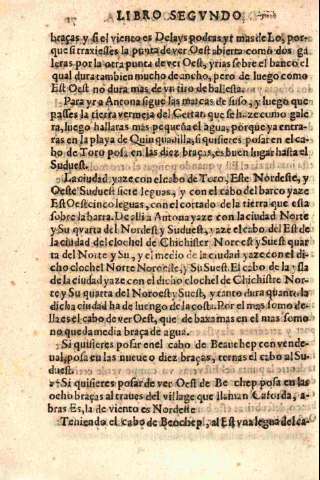 LIBRO SEGVNDO
braças y si el viento es Delays podras yr mas de Lo, por-
que si traxiesses la punta de ver Oest abierta como dos ga
leras por la otra punta de ver Oest, yrias sobre el banco el
qual dura tambien mucho de ancho, pero de luego como
Est Oest no dura mas de vn tiro de ballesta.
Para yr a Antona sigue las marcas de suso, y luego que
passes la tierra vermeja del Certan que se haze como gale
ra, luego hallaras mas pequeña el agua, porque ya entra-
ras en la playa de Quinquadilla, si quisieres posar en el ca-
bo de Toro posa en las diez braças, es buen lugar hasta el
Suduest.
La ciudad yaze con el cabo de Toro, Este Nordeste, y
Oeste Suduest siete leguas, y con el cabo del barco yaze
Est Oest cinco leguas, con el cortado de la tierra que esta
sobre la barra. De alli a Antona yaze con la ciudad Norte
y Su quarta del Nordest y Suduest, yaze el cabo del Es de
la ciudad del clochel de Chichister Norest y Suest quar
ta del Norte y Su, y el medio de la ciudad yaze con el di-
cho clochel Norte Noroeste, y Su Suest. El cabo de la ysla
de la ciudad yaze con el dicho clochel de Chichistre Nor-
te y Su quarta del Noroest y Suest, y tanto dura quanto la
dicha ciudad ha de luengo de la costa. Por el mas fomo de
lla es el cabo de ver Oest, que de baxa mas en el mas somo
no queda media braça de agua.
Si quisieres posar en el cabo de Beauchep con vende-
ual, posa en las nueue o diez braças, ternas el cabo al Su-
duest.
Si quisieres posar de ver Oest de Be chep posa en las
ocho braças al traues del village que llaman Caforda, a-
bras Es, la de viento es Nordeste
Teniendo el cabo de Beochep, al Est vna legua del ca-